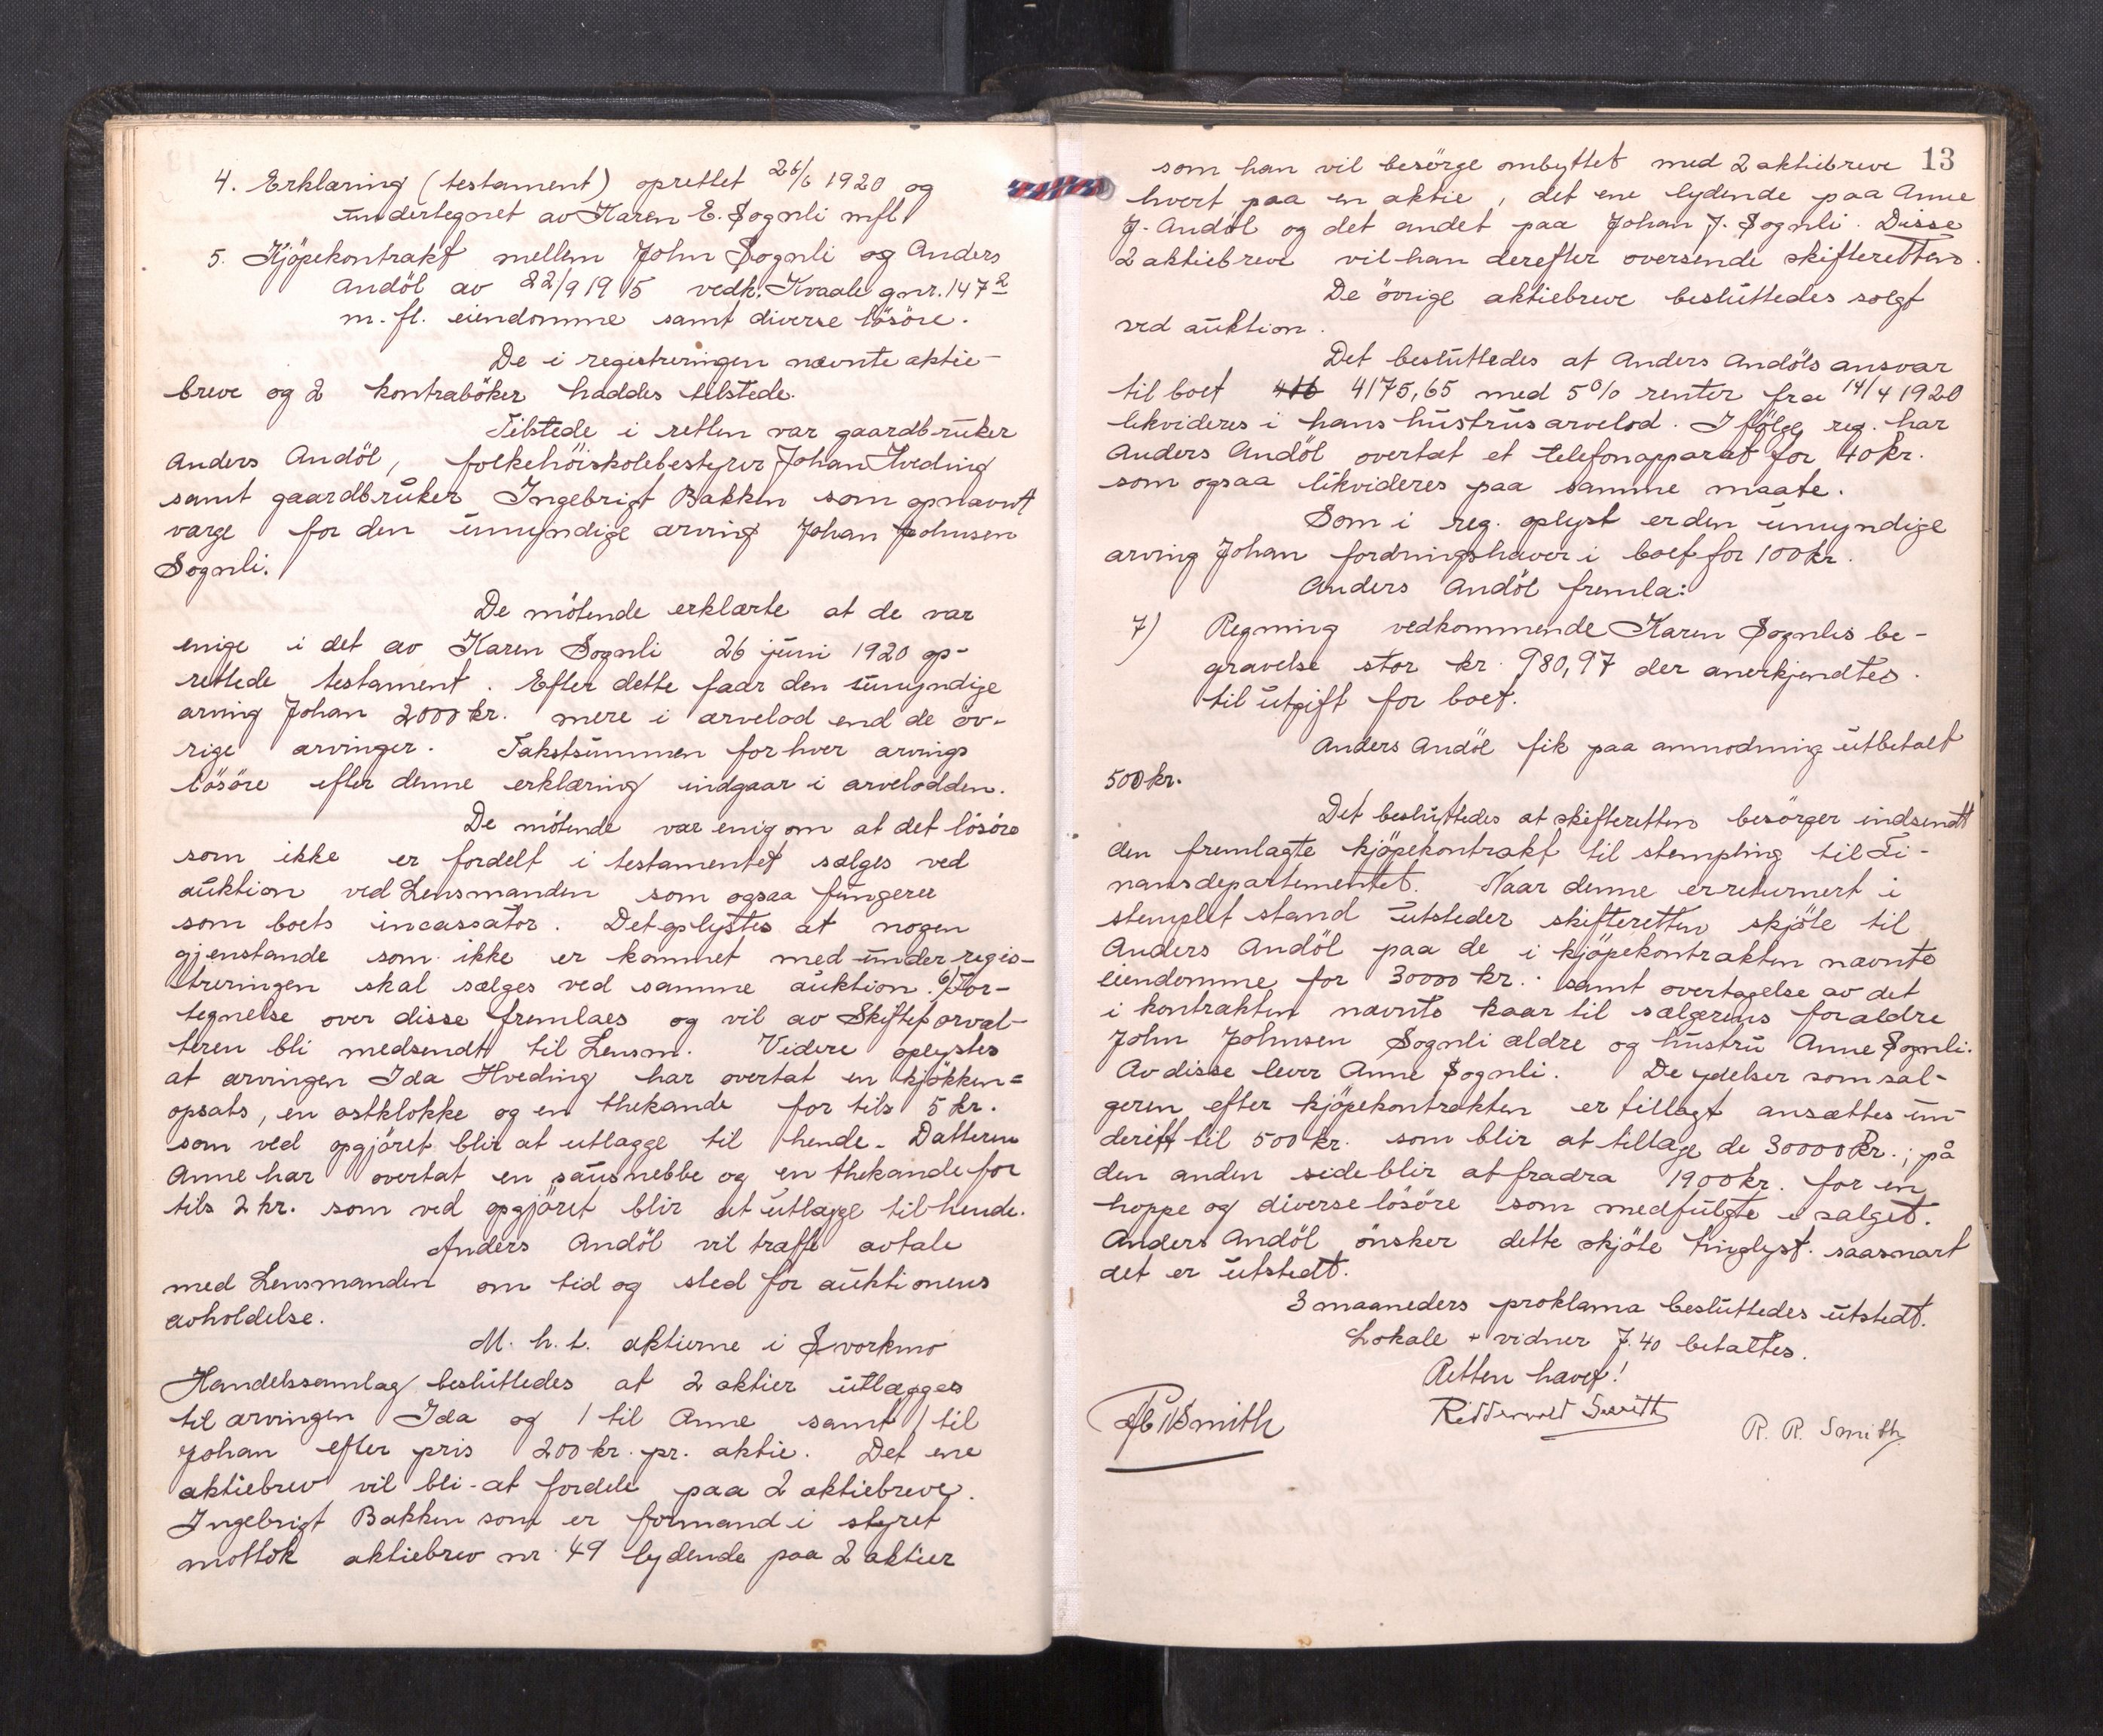 4. Erklæring (testament) oprettet 26/6 1920 og
undertegnet av Karen E. Sognli mfl.
5. Kjöpekontrakt mellem John Sognli og Anders
Andöl av 22/9 1915 vedk. Kvaale gnr. 147²
m. fl. eiendomme samt diverse lösöre.
De i registreringen nævnte aktie-
breve og 2 kontraböker haddes tilstede.
Tilstede i retten var gaardbruker
Anders Andöl, folkehöiskolebestyrer Johan Hveding
samt gaardbruker Ingebrigt Bakken som opnævnt
værge for den umyndige arving Johan Johnsen
Sognli.
De mötende erklærte at de var
enige i det av Karen Sognli 26 juni 1920 op-
rettede testament. Efter dette faar den umyndige
arving Johan 2000 kr. mere i arvelod end de öv-
rige arvinger. Takstsummen for hver arvings
lösöre efter denne erklæring indgaar i arvelodden.
De mötende var enig om at det lösöre
som ikke er fordelt i testamentet sælges ved
auktion ved Lensmanden som ogsaa fungerer
som boets incassator. Det oplystes at nogen
gjenstande som ikke er kommet med under regis-
treringen skal sælges ved samme auktion. 6) For-
tegnelse over disse fremlaes og vil av Skifteforval-
teren bli medsendt til Lensm. Videre oplystes
at arvingen Ida Hveding har overtat en kjökken=
opsats, en ostklokke og en thekande for tils 5 kr.
som ved opgjöret blir at utlægge til hende. Datteren
Anne har overtat en sausnebbe og en thekande for
tils 2 kr. som ved opgjöret blir at utlægge til hende.
Anders Andöl vil træffe avtale
med Lensmanden om tid og sted for auktionens
avholdelse.
M. h. t. aktierne i Svorkmo
Handelssamlag besluttedes at 2 aktier utlægges
til arvingen Ida og 1 til Anne samt 1 til
Johan efter pris 200 kr. pr. aktie. Det ene
aktiebrev vil bli at fordele paa 2 aktiebreve.
Ingebrigt Bakken som er formand i styret
mottok aktiebrev nr. 49 lydende paa 2 aktier
13
som han vil besörge ombyttet med 2 aktiebreve
hvert paa en aktie, det ene lydende paa Anne
J. Andöl og det andet paa Johan J. Sognli. Disse
2 aktiebreve vil han derefter oversende skifteretten.
De övrige aktiebreve besluttedes solgt
ved auktion.
Det besluttedes at Anders Andöls ansvar
til boet 416 4175,65 med 5% renter fra 14/4 1920
likvideres i hans hustrus arvelod. Ifölge reg. har
Anders Andöl overtat et telefonapparat for 40 kr.
som ogsaa likvideres paa samme maate.
Som i reg. oplyst er den umyndige
arving Johan fordringshaver i boet for 100 kr.
Anders Andöl fremla:
7) Regning vedkommende Karen Sognlis be-
gravelse stor kr. 980,97 der anerkjendtes
til utgift for boet.
Anders Andöl fik paa anmodning utbetalt
500 kr.
Det besluttedes at skifteretten besörger indsendt
den fremlagte kjöpekontrakt til stempling til Fi-
nansdepartementet. Naar denne er returnert i
stemplet stand utsteder skifteretten skjöte til
Anders Andöl paa de i kjöpekontrakten nævnte
eiendomme for 30000 kr. samt overtagelse av det
i kontrakten nævnte kaar til sælgerens foræaldre
John Johnsen Sognli ældre og hustru Anne Sognli.
Av disse lever Anne Sognli. De ydelser som sæl-
geren efter kjöpekontrakten er tillagt ansættes un-
derett til 500 kr. som blir at tillægge de 30000 kr.; på
den anden side blir at fradra 1900 kr. for en
hoppe og diverse lösöre som medfulgte i salget.
Anders Andöl önsker dette skjöte tinglyst saasnart
det er utstedt.
3 maaneders proklama besluttedes utstedt.
Lokale + vidner 7.40 betaltes.
Retten hævet!
Smith
Riddervold Smith
R. R. Smith